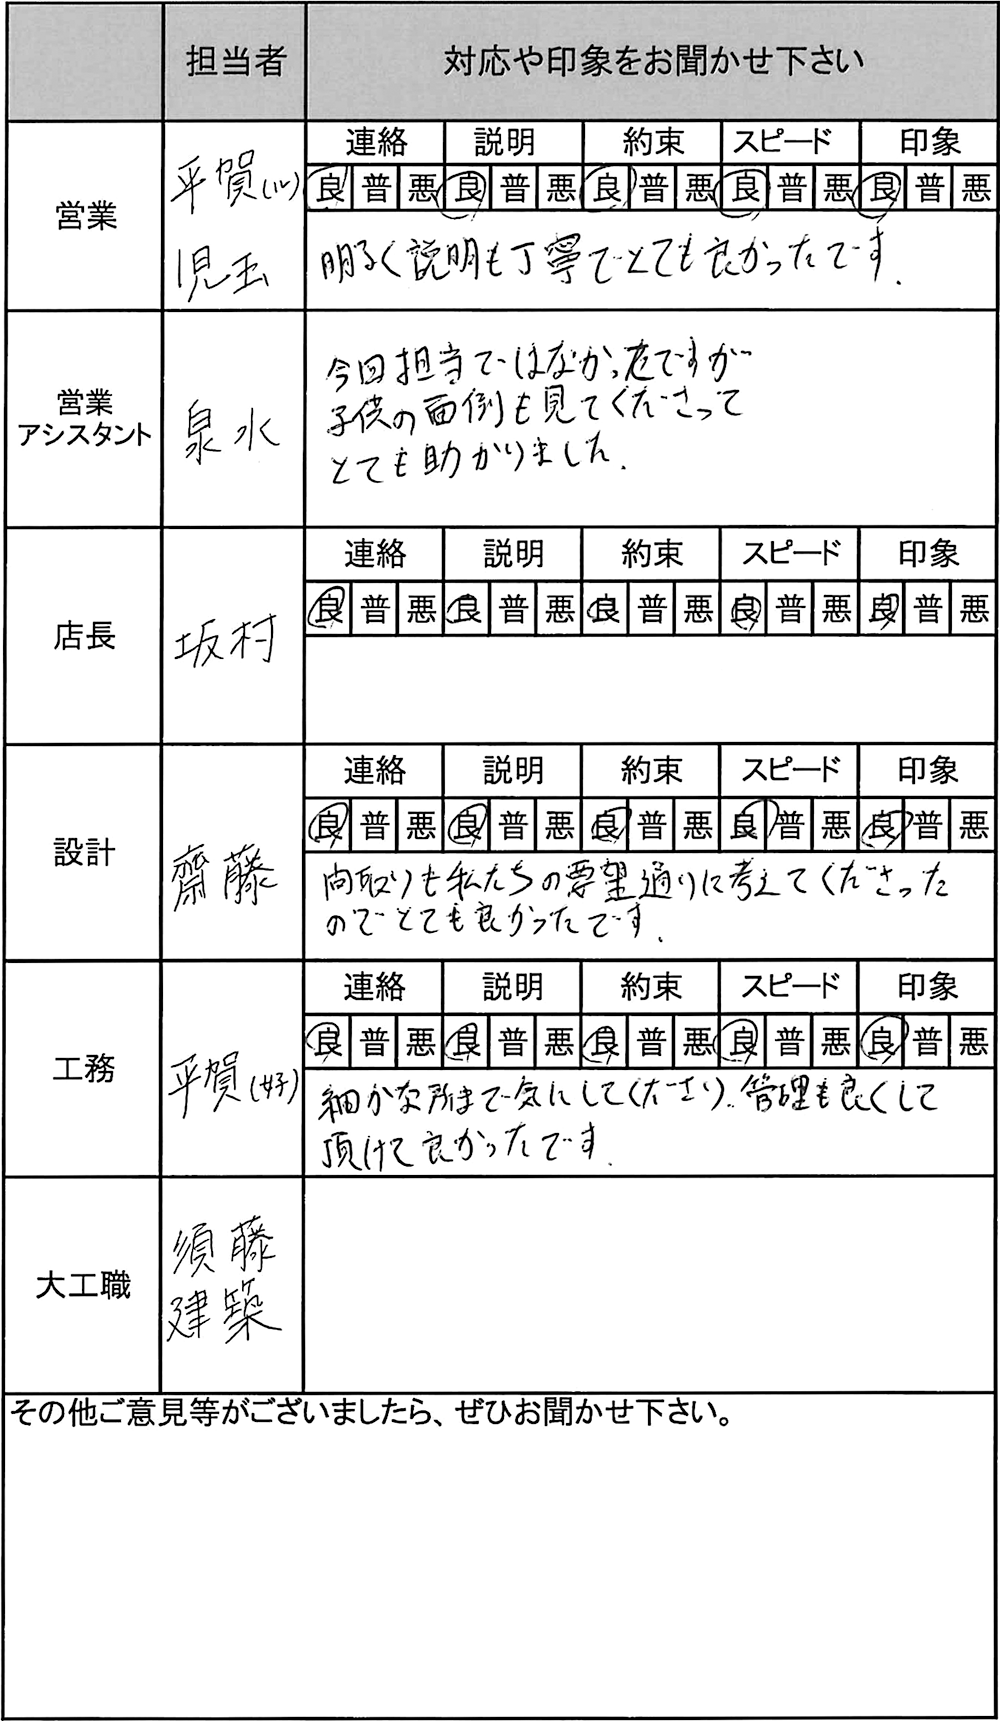 担当者 対応や印象をお聞かせ下さい
営業 平賀(ル) 児玉
連絡 説明 約束 スピード 印象
良 普 悪 良 普 悪 良 普 悪 良 普 悪 良 普 悪
明るく説明も丁寧でとても良かったです.
営業
アシスタント 泉水
今回担当ではなかったですが
子供の面倒も見てくださって
とても助かりました.
店長 坂村
連絡 説明 約束 スピード 印象
良 普 悪 良 普 悪 良 普 悪 良 普 悪 良 普 悪
設計 齋藤
連絡 説明 約束 スピード 印象
良 普 悪 良 普 悪 良 普 悪 良 普 悪 良 普 悪
間取りも私たちの要望通りに考えてくださった
のでとても良かったです.
工務 平賀(好)
連絡 説明 約束 スピード 印象
良 普 悪 良 普 悪 良 普 悪 良 普 悪 良 普 悪
細かな所まで気にしてくださり、管理も良くして
頂けて良かったです.
大工職 須藤
建築
その他ご意見等がございましたら、ぜひお聞かせ下さい。